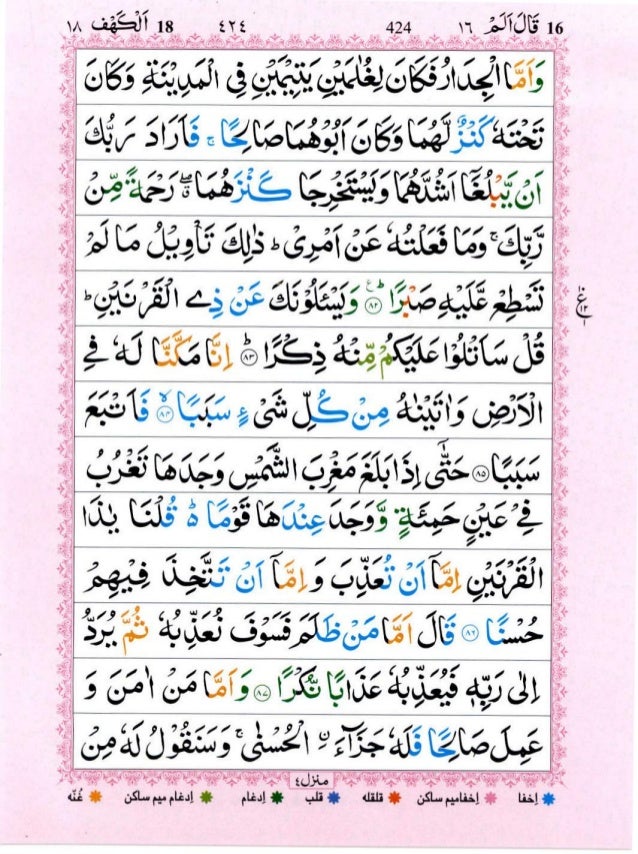 ١٨ اَلْكَهْف 18 ٤٢٤ 424 ١٦ قَالَ اَلَمْ 16
وَاَمَّا الْجِدَارُ فَكَانَ لِغُلٰمَيْنِ يَتِيْمَيْنِ فِى الْمَدِيْنَةِ وَكَانَ
تَحْتَهٗ كَنْزٌ لَّهُمَا وَكَانَ اَبُوْهُمَا صَالِحًا ۚ فَاَرَادَ رَبُّكَ
اَنْ يَّبْلُغَاۤ اَشُدَّهُمَا وَيَسْتَخْرِجَا كَنْزَهُمَا ۖۗ رَحْمَةً مِّنْ
رَّبِّكَ ۚ وَمَا فَعَلْتُهٗ عَنْ اَمْرِىْ ؕ ذٰلِكَ تَاْوِيْلُ مَا لَمْ
تَسْطِعْ عَّلَيْهِ صَبْرًا ؕ ۟ۧ ﴿٨٢﴾ وَيَسْئَلُوْنَكَ عَنْ ذِى الْقَرْنَيْنِ ؕ
قُلْ سَاَتْلُوْا عَلَيْكُمْ مِّنْهُ ذِكْرًا ؕ ﴿٨٣﴾ اِنَّا مَكَّنَّا لَهٗ فِى
الْاَرْضِ وَاٰتَيْنٰهُ مِنْ كُلِّ شَىْءٍ سَبَبًا ۙ ﴿٨٤﴾ فَاَتْبَعَ
سَبَبًا ﴿٨٥﴾ حَتّٰٓى اِذَا بَلَغَ مَغْرِبَ الشَّمْسِ وَجَدَهَا تَغْرُبُ
فِىْ عَيْنٍ حَمِئَةٍ وَّوَجَدَ عِنْدَهَا قَوْمًا ؕ۬ قُلْنَا يٰذَا
الْقَرْنَيْنِ اِمَّاۤ اَنْ تُعَذِّبَ وَاِمَّاۤ اَنْ تَتَّخِذَ فِيْهِمْ
حُسْنًا ﴿٨٦﴾ قَالَ اَمَّا مَنْ ظَلَمَ فَسَوْفَ نُعَذِّبُهٗ ثُمَّ يُرَدُّ
اِلٰى رَبِّهٖ فَيُعَذِّبُهٗ عَذَابًا نُّكْرًا ﴿٨٧﴾ وَاَمَّا مَنْ اٰمَنَ وَ
عَمِلَ صَالِحًا فَلَهٗ جَزَآءَ ۨالْحُسْنٰى ۚ وَسَنَقُوْلُ لَهٗ مِنْ
منزل٤
اِخفا اِخفامیم ساکن قلقله قلب اِدغام اِدغام میم ساکن غُنّه